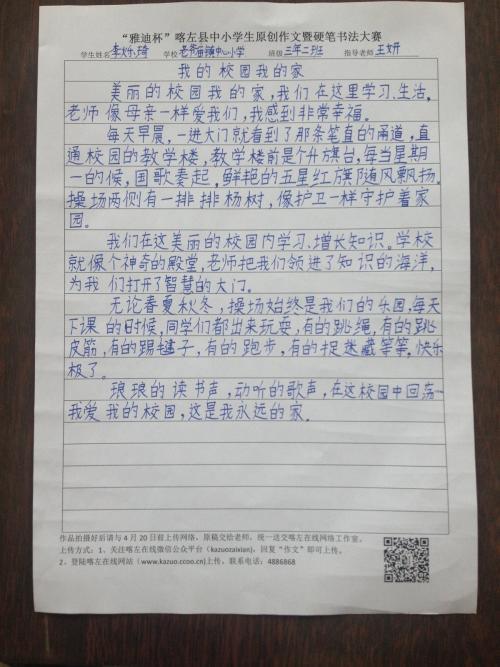 “雅迪杯”喀左县中小学生原创作文暨硬笔书法大赛
学生姓名 李烁琦 学校 老爷庙镇中心小学 班级 三年二班 指导老师 王文妍
我的校园我的家
美丽的校园我的家,我们在这里学习、生活。
老师像母亲一样爱我们,我感到非常幸福。
每天早晨,一进大门就看到了那条笔直的甬道,直
通校园的教学楼,教学楼前是个升旗台,每当星期
一的候,国歌奏起,鲜艳的五星红旗随风飘扬。
操场两侧有一排排杨树,像护卫一样守护着家
园。
我们在这美丽的校园内学习、增长知识。学校
就像个神奇的殿堂,老师把我们领进了知识的海洋,
为我们打开了智慧的大门。
无论春夏秋冬,操场始终是我们的乐园,每天
下课的时候,同学们都出来玩耍,有的跳绳,有的跳
皮筋,有的踢毽子,有的跑步,有的捉迷藏等等,快乐
极了。
琅琅的读书声,动听的歌声,在这校园中回荡…
我爱我的校园,这是我永远的家.
作品拍摄好后请与4月20日前上传网络,原稿交给老师,统一送交喀左在线网络工作室。
上传方式:1、关注喀左在线微信公众平台(kazuozaixian),回复“作文”即可上传。
2、登陆喀左在线网站(www.kazuo.ccoo.cn)上传,联系电话:4886868